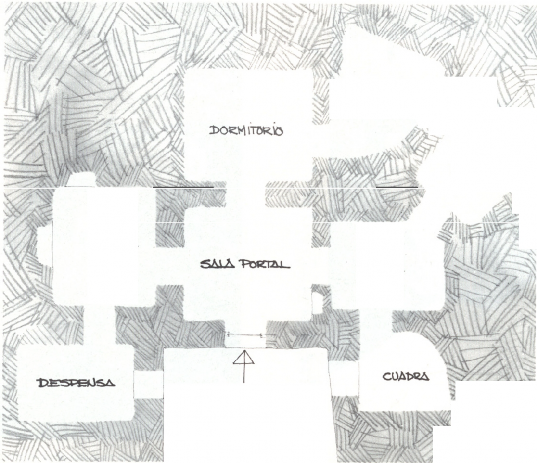 DORMITORIO
SALA PORTAL
DESPENSA
CUADRA